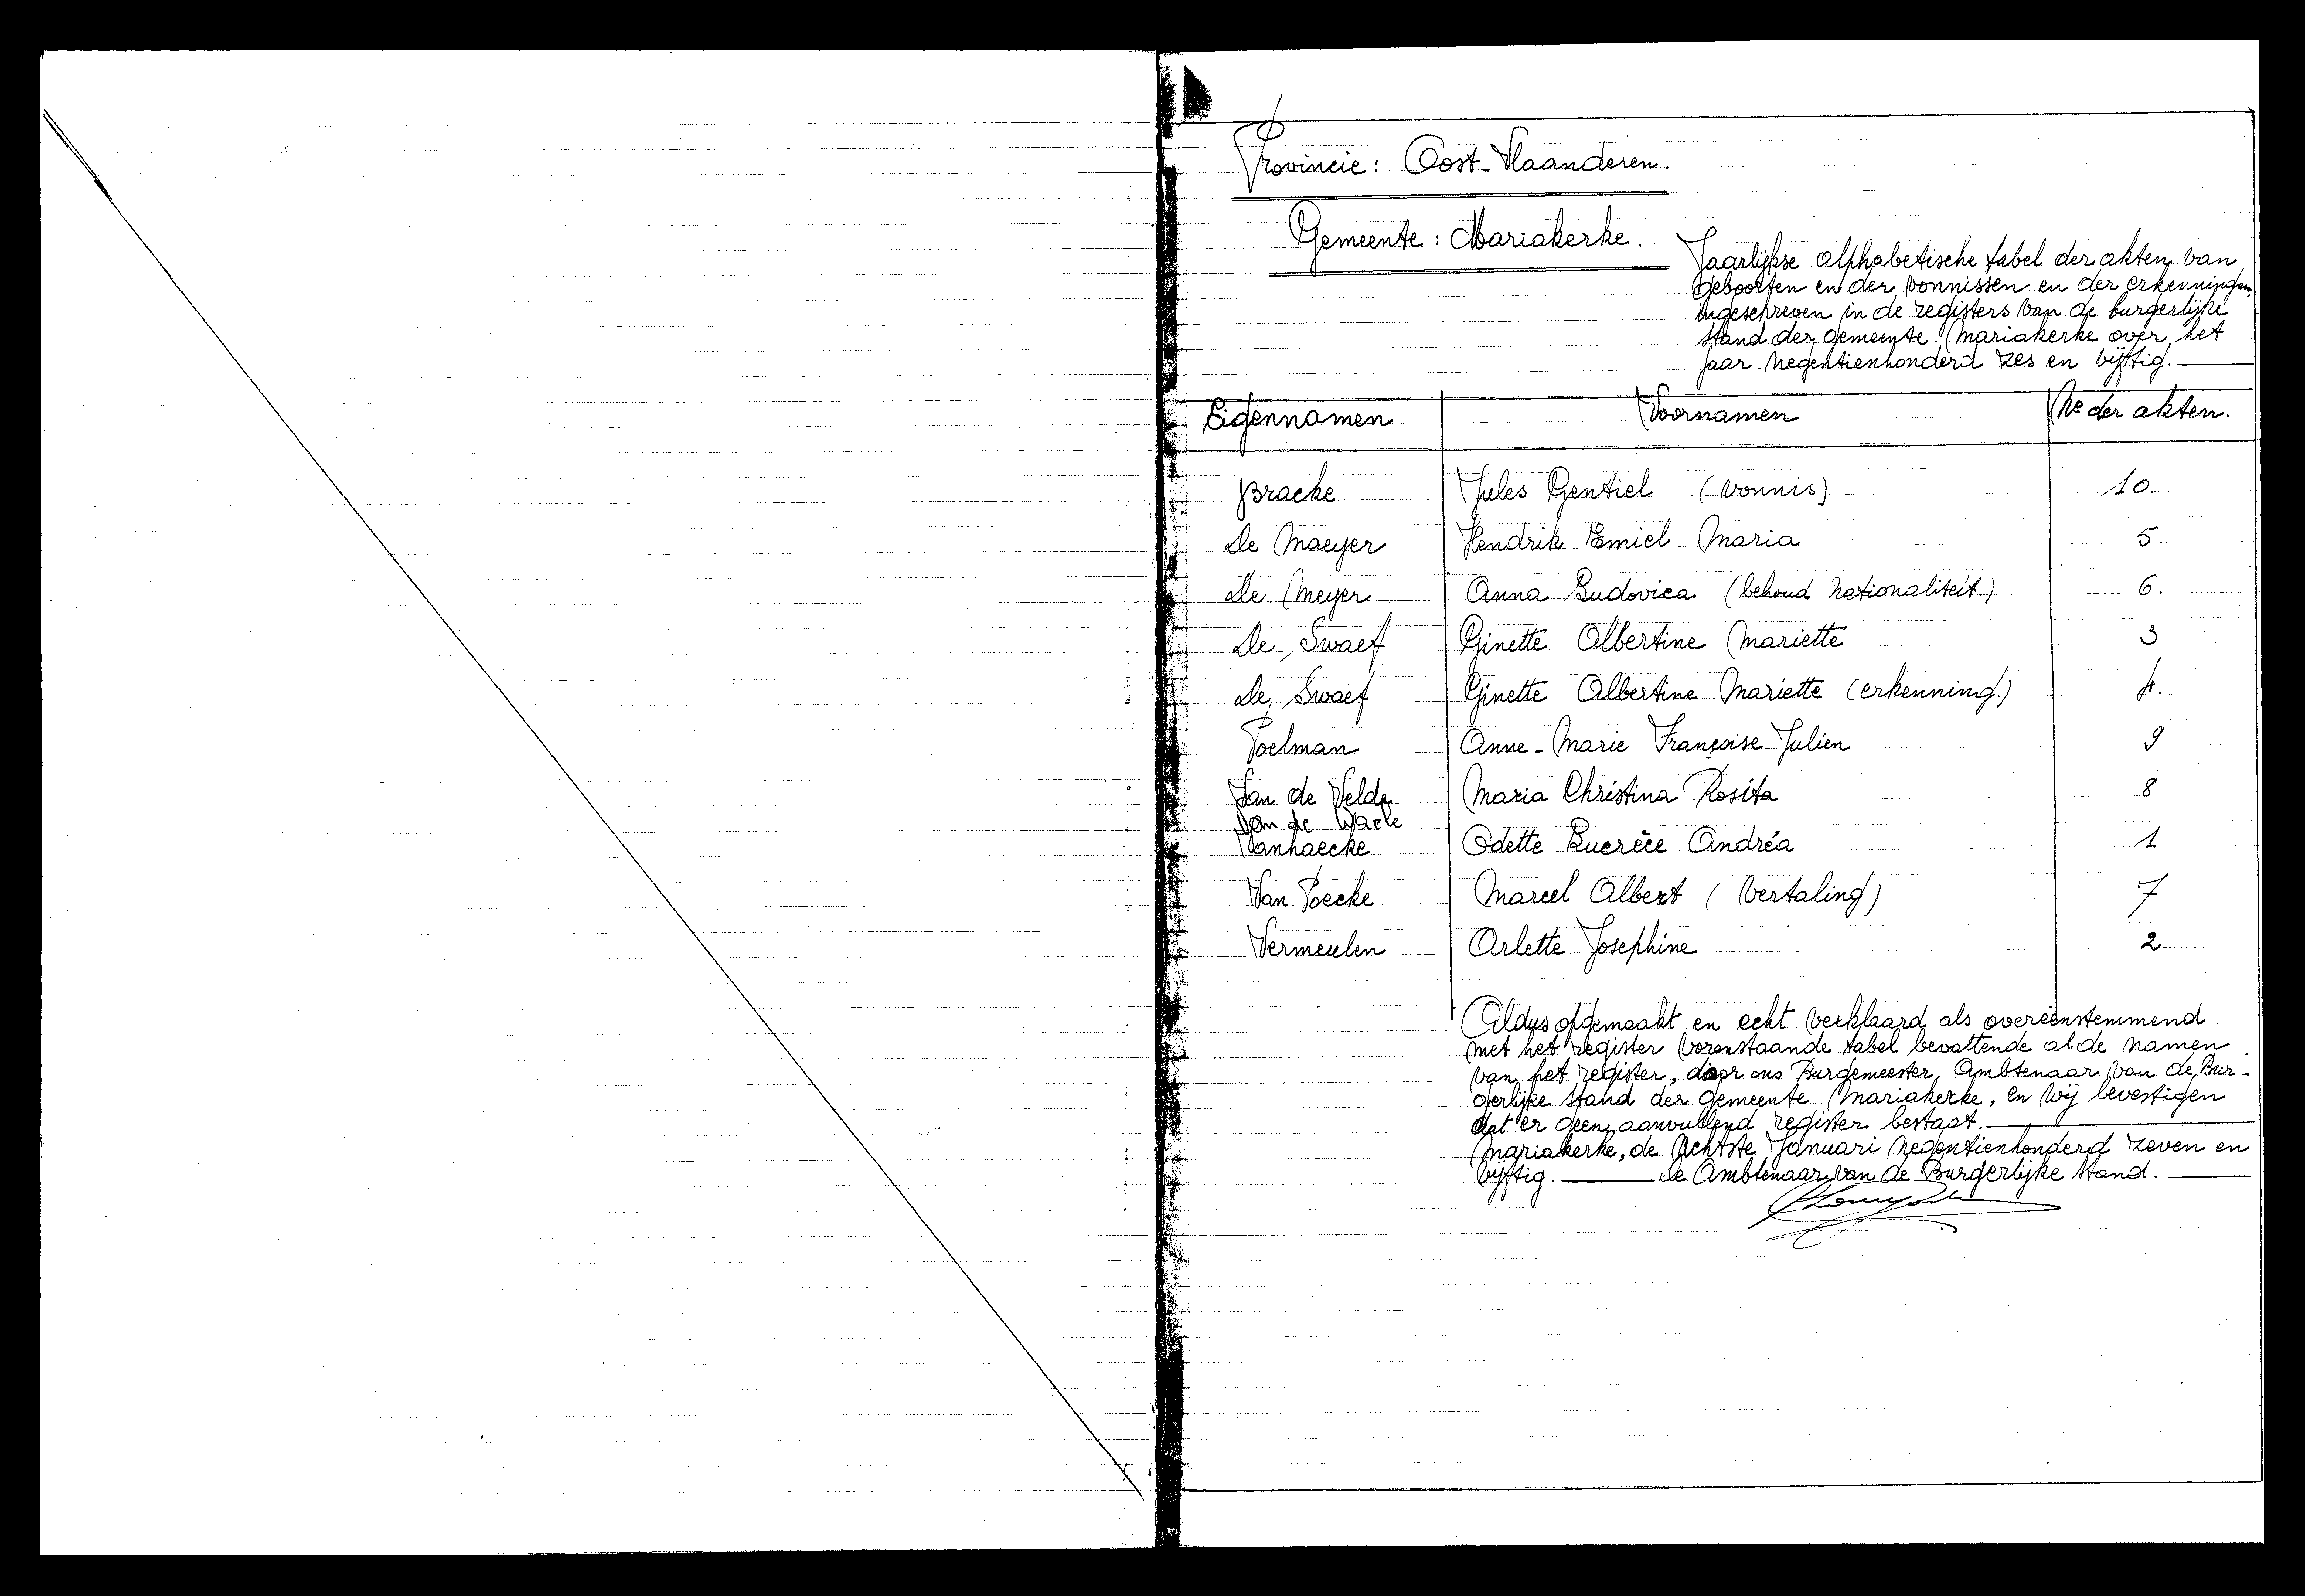 Provincie: Oost-Vlaanderen.
Gemeente: Mariakerke.
Jaarlijkse alphabetische tabel der akten van
geboorten en der vonnissen en der erkenningen,
ingeschreven in de registers van de burgerlijke
stand der gemeente Mariakerke over het
jaar negentienhonderd zes en vijftig.
Eigennamen Voornamen Nr der akten.
Bracke Jules Gentiel (vonnis) 10.
De Maeyer Hendrik Emiel Maria 5
De Meyer Anna Ludovica (behoud nationaliteit.) 6.
De Swaef Ginette Albertine Mariette 3
De Swaef Ginette Albertine Mariette (erkenning.) 4.
Poelman Anne-Marie Françoise Julien 9
Van de Velde Maria Christina Rosita 8
Van de Waele
Vanhaecke Odette Lucrèce Andréa 1
Van Poecke Marcel Albert (vertaling) 7
Vermeulen Arlette Josephine 2
Aldus opgemaakt en echt verklaard als overeenstemmend
met het register vorenstaande tabel bevattende al de namen
van het register, door ons Burgemeester, Ambtenaar van de Bur-
gerlijke stand der gemeente Mariakerke, en wij bevestigen
dat er geen aanvullend register bestaat.
Mariakerke, de achtste Januari negentienhonderd zeven en
vijftig. de Ambtenaar van de Burgerlijke stand.